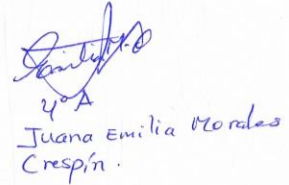 4º A
Juana Emilia Morales
Crespín.